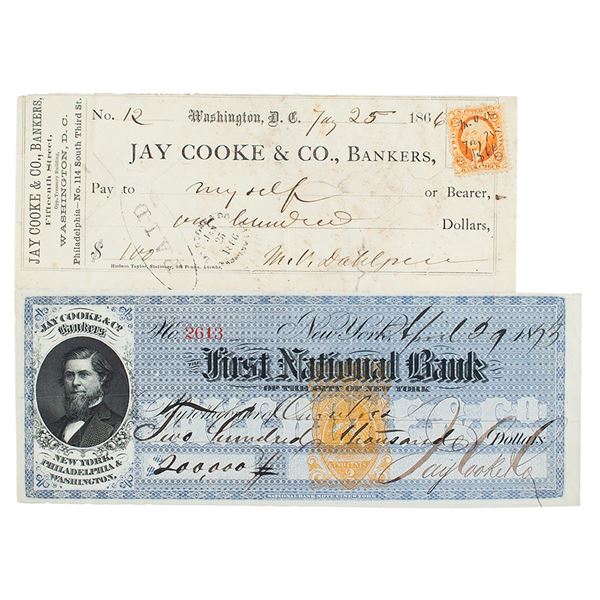 JAY COOKE & CO., BANKERS,
Fifteenth Street,
Opp. Treasury Building,
WASHINGTON, D. C.
Philadelphia—No. 114 South Third St.
No. 12 Washington, D. C. Jay 25 1866
JAY COOKE & CO., BANKERS,
Pay to myself or Bearer,
one hundred Dollars,
$ 100
PAID
Hudson Taylor, Stationer, 334 Penna. Avenue.
JAY COOKE & CO.
Bankers
NEW YORK,
PHILADELPHIA &
WASHINGTON.
No. 2613 New York, April 29 1873
The First National Bank
OF THE CITY OF NEW YORK
Two hundred thousand Dollars
200,000 Jay Cooke Co
NATIONAL BANK NOTE CO. NEW YORK